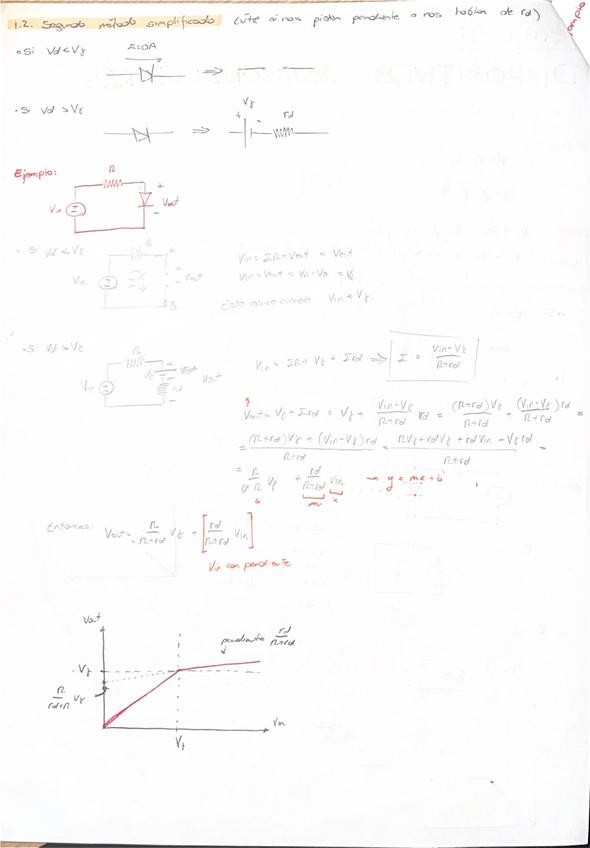 1.2. Segundo método simplificado (úte si nos piden pendiente o nos hablan de rd)
• Si Vd < Vγ I=0A
• Si Vd > Vγ
Vγ rd
+ -
Ejemplo:
R
Vin + Vout -
• Si Vd < Vγ
R
Vin I Vout
Vin = IR + Vout = Vout
Esto ocurre cuando Vin < Vγ.
• Si Vd > Vγ
R
Vin Vγ rd Vout
Vin = IR + Vγ + Ird ⇒ I = (Vin - Vγ)/(R+rd)
Vout = Vγ + Ird = Vγ + (Vin - Vγ)/(R+rd) rd = (R+rd)Vγ/(R+rd) + (Vin - Vγ)rd/(R+rd) =
= ((R+rd)Vγ + (Vin - Vγ)rd)/(R+rd) = (RVγ + rdVγ + rdVin - Vγrd)/(R+rd) =
Vγ + rd/(R+rd) Vin → y = mx + b
b m x
Entonces: Vout = R/(R+rd) Vγ + [rd/(R+rd) Vin]
Vin con pendiente
Vout
pendiente rd/(R+rd)
Vγ
R/(rd+R) Vγ
Vin
Vγ